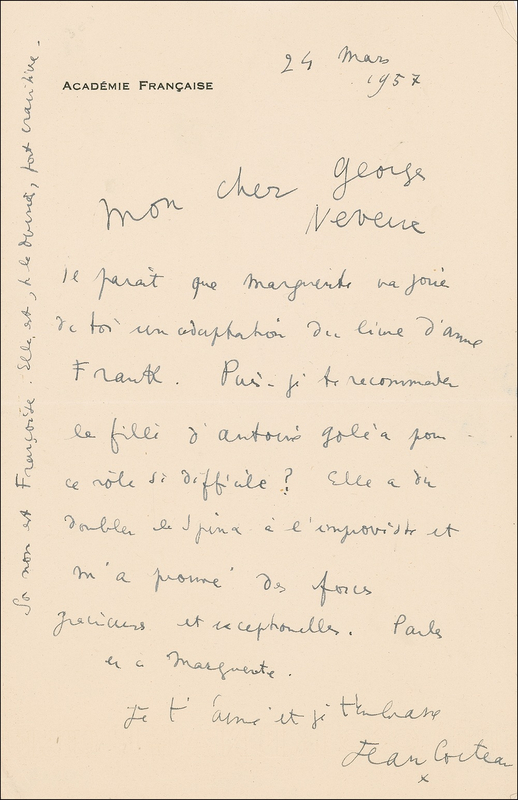 ACADÉMIE FRANÇAISE
24 Mars
1957
Mon cher Georges
Neveux
Il paraît que Marguerite va jouer
de toi un adaptation du livre d'Anne
Frank. Puis-je te recommander
la fille d'Antoine Goléa pour
ce rôle si difficile ? Elle a dû
doubler la Spira à l'improviste et
m'a prouvé des forces
gracieuses et exceptionelles. Parles
en à Marguerite.
Je t'aime et je t'embrasse
Jean Cocteau
Son nom est Françoise. Elle est, je le devine, fort craintive.